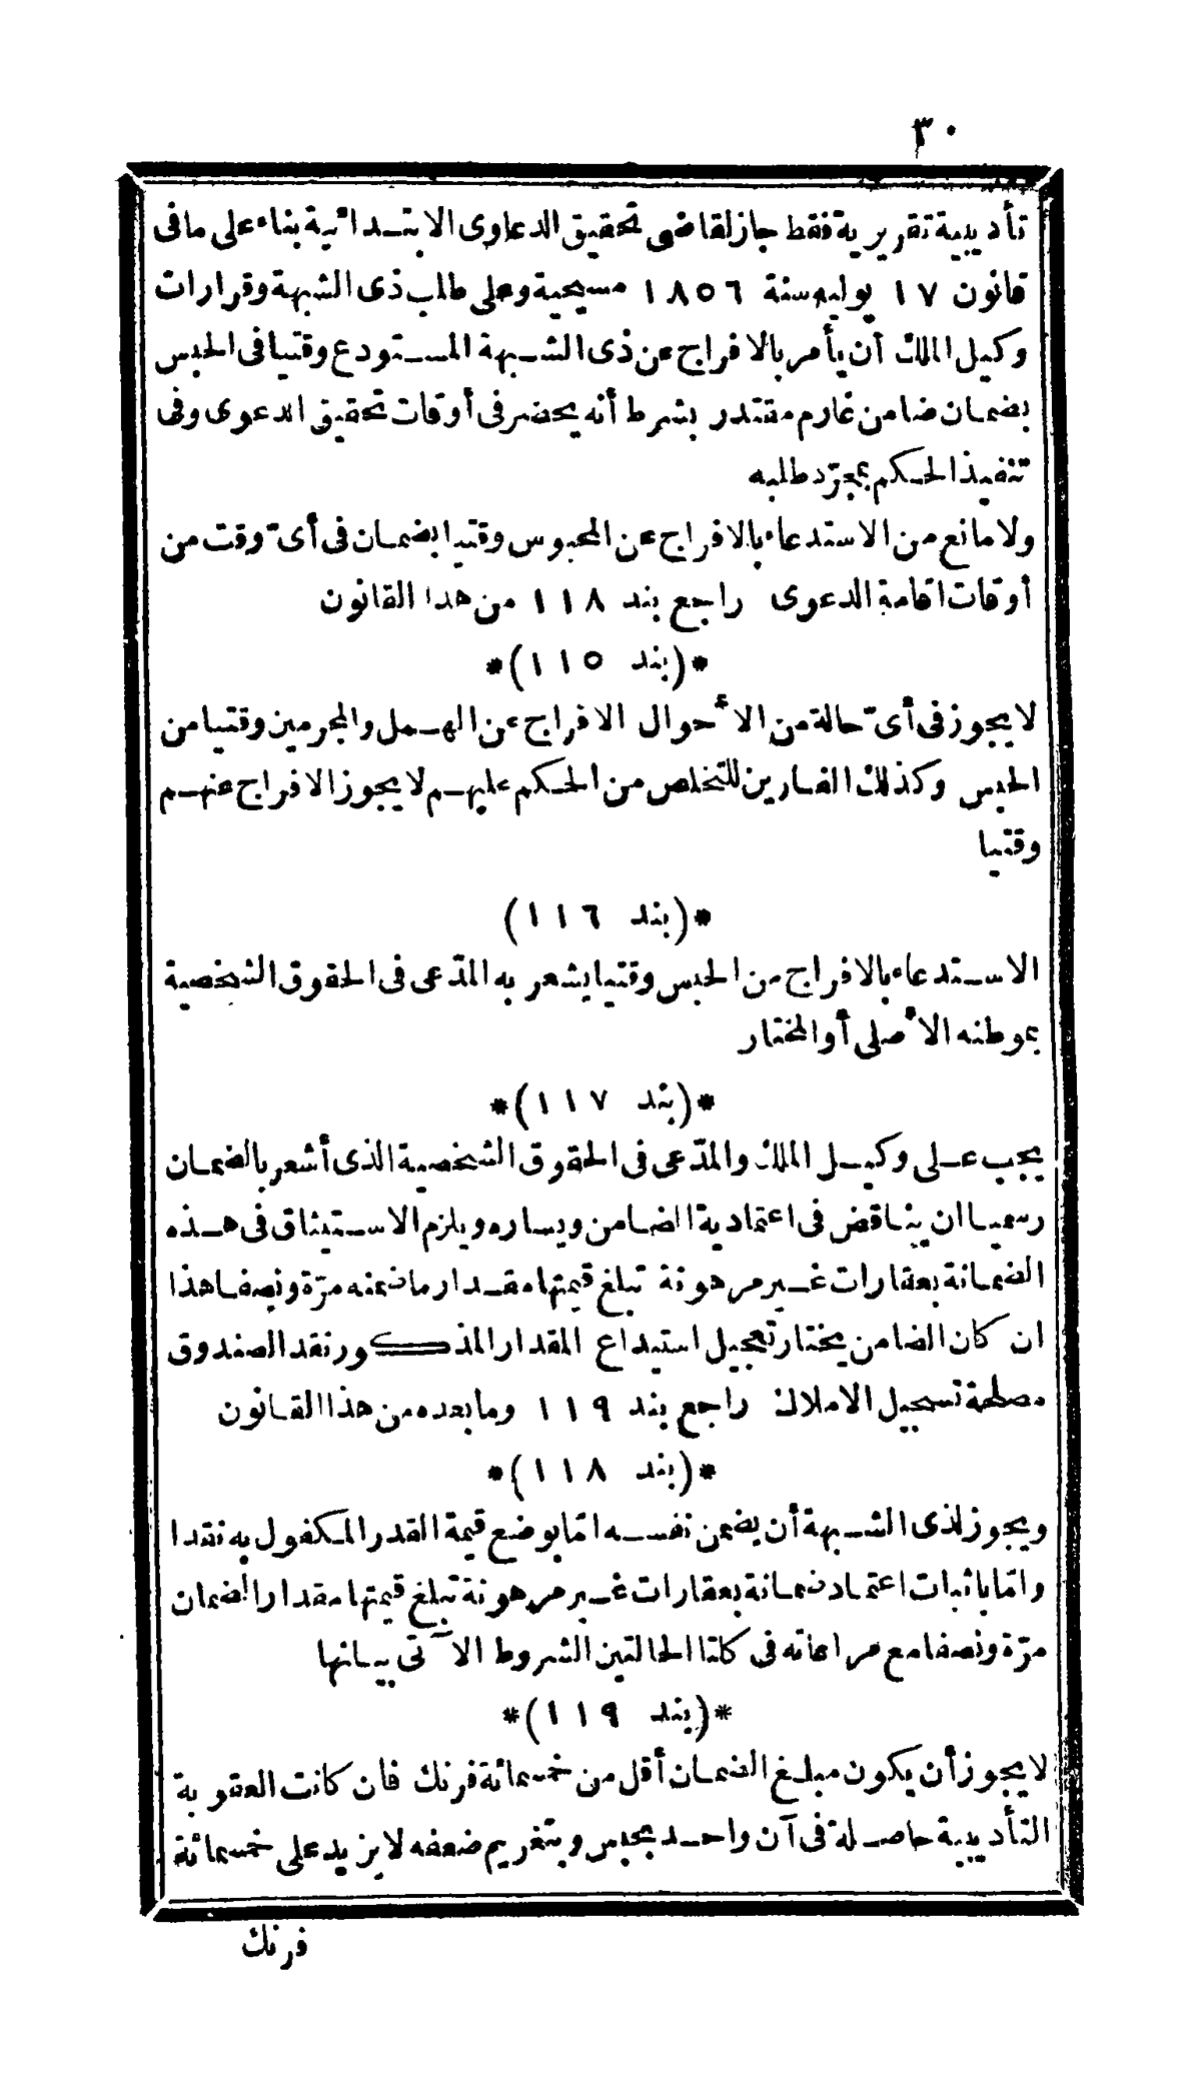 ٣٠
تأديبية تقريرية فقط جاز لقاضى تحقيق الدعاوى الابتدائية بناء على مافى
قانون ١٧ يوليه سنة ١٨٥٦ مسيحية وعلى طلب ذى الشبهة وقرارات
وكيل الملك أن يأمر بالافراج عن ذى الشبهة المستودع وقتيا فى الحبس
بضمان ضامن غارم مقتدر بشرط أنه يحضر فى أوقات تحقيق الدعوى وفى
تنفيذ الحكم بمجرّد طلبه
ولامانع من الاستدعاء بالافراج عن المحبوس وقتيا بضمان فى أىّ وقت من
أوقات اقامة الدعوى راجع بند ١١٨ من هذا القانون
*(بند ١١٥)*
لايجوز فى أىّ حالة من الأحوال الافراج عن الهمل والمجرمين وقتيا من
الحبس وكذلك الفارين للتخلص من الحكم عليهم لايجوز الافراج عنهم
وقتيا
*(بند ١١٦)
الاستدعاء بالافراج من الحبس وقتيا يشعر به المدّعى فى الحقوق الشخصية
بموطنه الأصلى أوالمختار
*(بند ١١٧)*
يجب على وكيل الملك والمدّعى فى الحقوق الشخصية الذى أشعر بالضمان
رسميا ان يناقض فى اعتمادية الضامن ويساره ويلزم الاستيثاق فى هذه
الضمانة بعقارات غير مرهونة تبلغ قيمتها مقدار ماضمنه مرّة ونصفا هذا
ان كان الضامن يختار تعجيل استيداع المقدار المذكور نقد الصندوق
مصلحة تسجيل الاملاك راجع بند ١١٩ ومابعده من هذا القانون
*(بند ١١٨)*
ويجوز لذى الشبهة أن يضمن نفسه امّا بوضع قيمة القدر المكفول به نقدا
وامّا باثبات اعتماد ضمانة بعقارات غير مرهونة تبلغ قيمتها مقدار الضمان
مرّة ونصفا مع مراعاته فى كلتا الحالتين الشروط الآتى بيانها
*(بند ١١٩)*
لايجوز أن يكون مبلغ الضمان أقل من خمسمائة فرنك فان كانت العقوبة
التأديبية حاصلة فى آن واحد بحبس وبتغريم ضعفه لايزيد على خمسمائة
فرنك